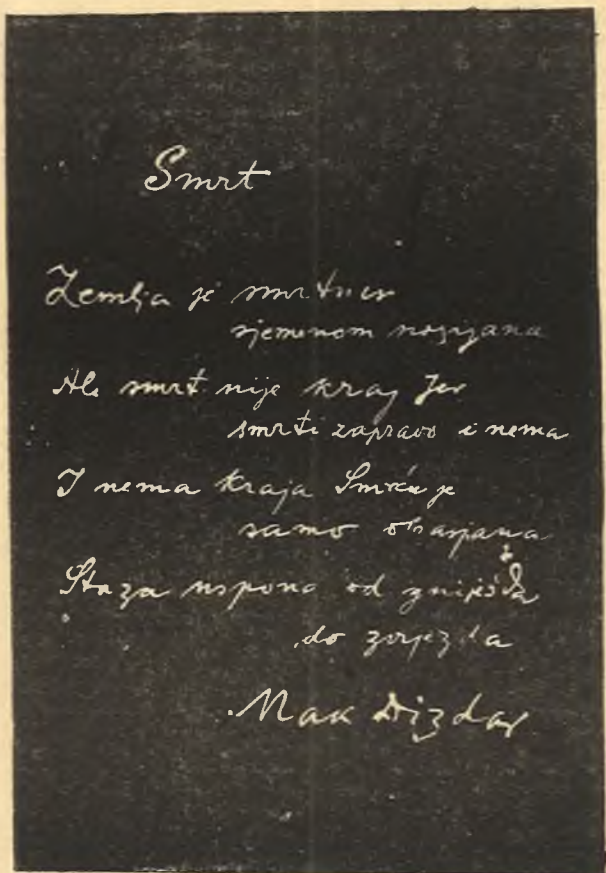 Smrt
Zemlja je smrtnim
sjemenom posijana
Ali smrt nije kraj Jer
smrti zapravo i nema
I nema kraja Smrću je
samo obasjana
Staza uspona od gnijezda
do zvijezda
Mak Dizdar